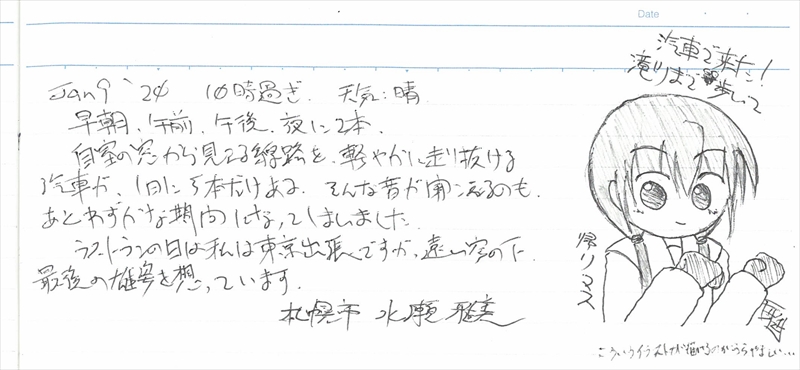 Date
Jan 9 '20 10時過ぎ. 天気:晴
早朝、午前、午後、夜に2本.
自室の窓から見える線路を、軽やかに走り抜ける
汽車が、1日に5本だけある. そんな音が聞こえるのも.
あとわずかな期間になってしまいました.
ラストランの日は私は東京出張ですが、遠い空の下.
最後の雄姿を想っています.
札幌市 水瀬 雅美
汽車で来た!
滝川まで 歩いて
帰りマス
こういうイラストが描けるのがうらやましい…